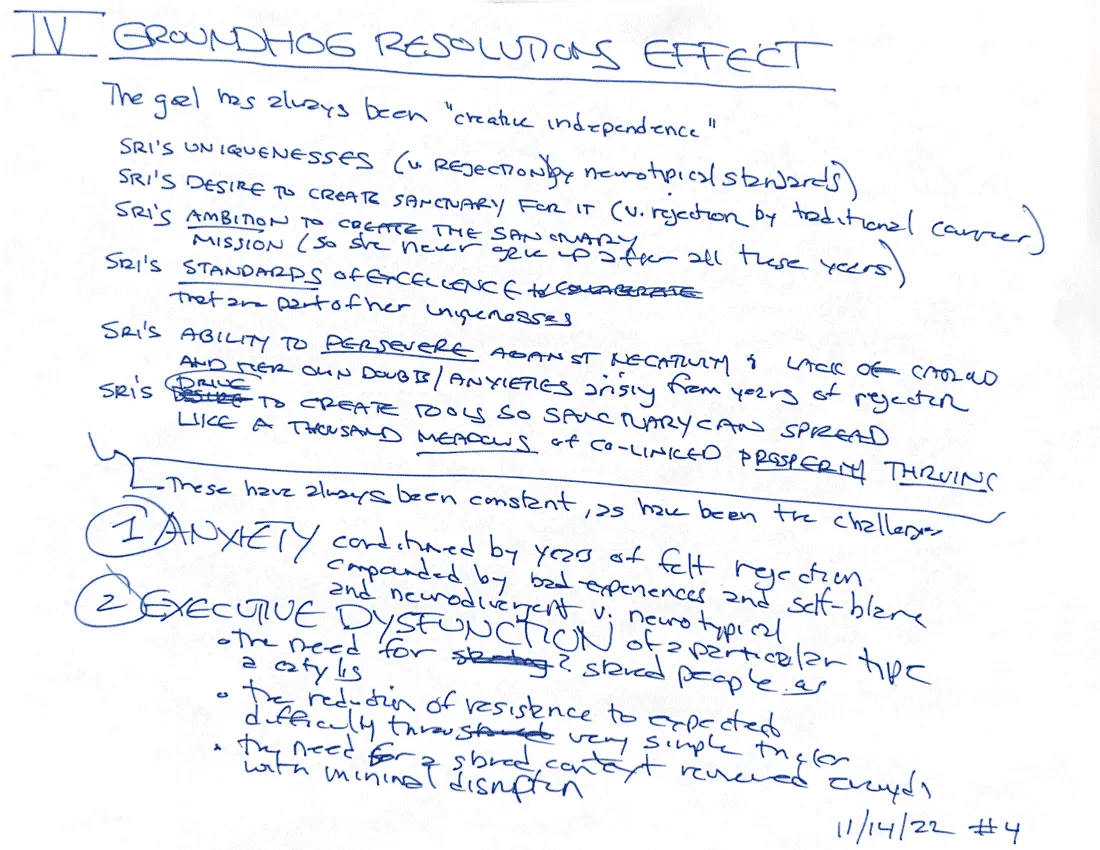 IV GROUNDHOG RESOLUTIONS EFFECT
The goal has always been "creative independence"
SRI'S UNIQUENESSES (v. REJECTION by neurotipical standards)
SRI'S DESIRE TO CREATE SANCTUARY FOR IT (v. rejection by traditional carrier)
SRI'S AMBITION TO CREATE THE SANCTUARY
MISSION (so she never gave up after all these years)
SRI'S STANDARDS of EXCELLENCE
that are part of her uniquenesses
SRI'S ABILITY TO PERSEVERE AGAINST NEGATIVITY & LACK OF
AND HER OWN DOUBTS/ANXIETIES arising from years of rejection
SRI'S DRIVE TO CREATE TOOLS SO SANCTUARY CAN SPREAD
LIKE A THOUSAND MEADOWS of CO-LINKED PROSPERITY THRIVING
These have always been constant, as have been the challenges
1 ANXIETY conditioned by years of felt rejection
compounded by bad experiences and self-blame
and neurodivergent v. neurotypical
2 EXECUTIVE DYSFUNCTION of a particular type
• the need for shared people as
a
• the reduction of resistance to expected
difficulty through very simple
• the need for a shared context renewed
with minimal disruption
11/14/22 #4